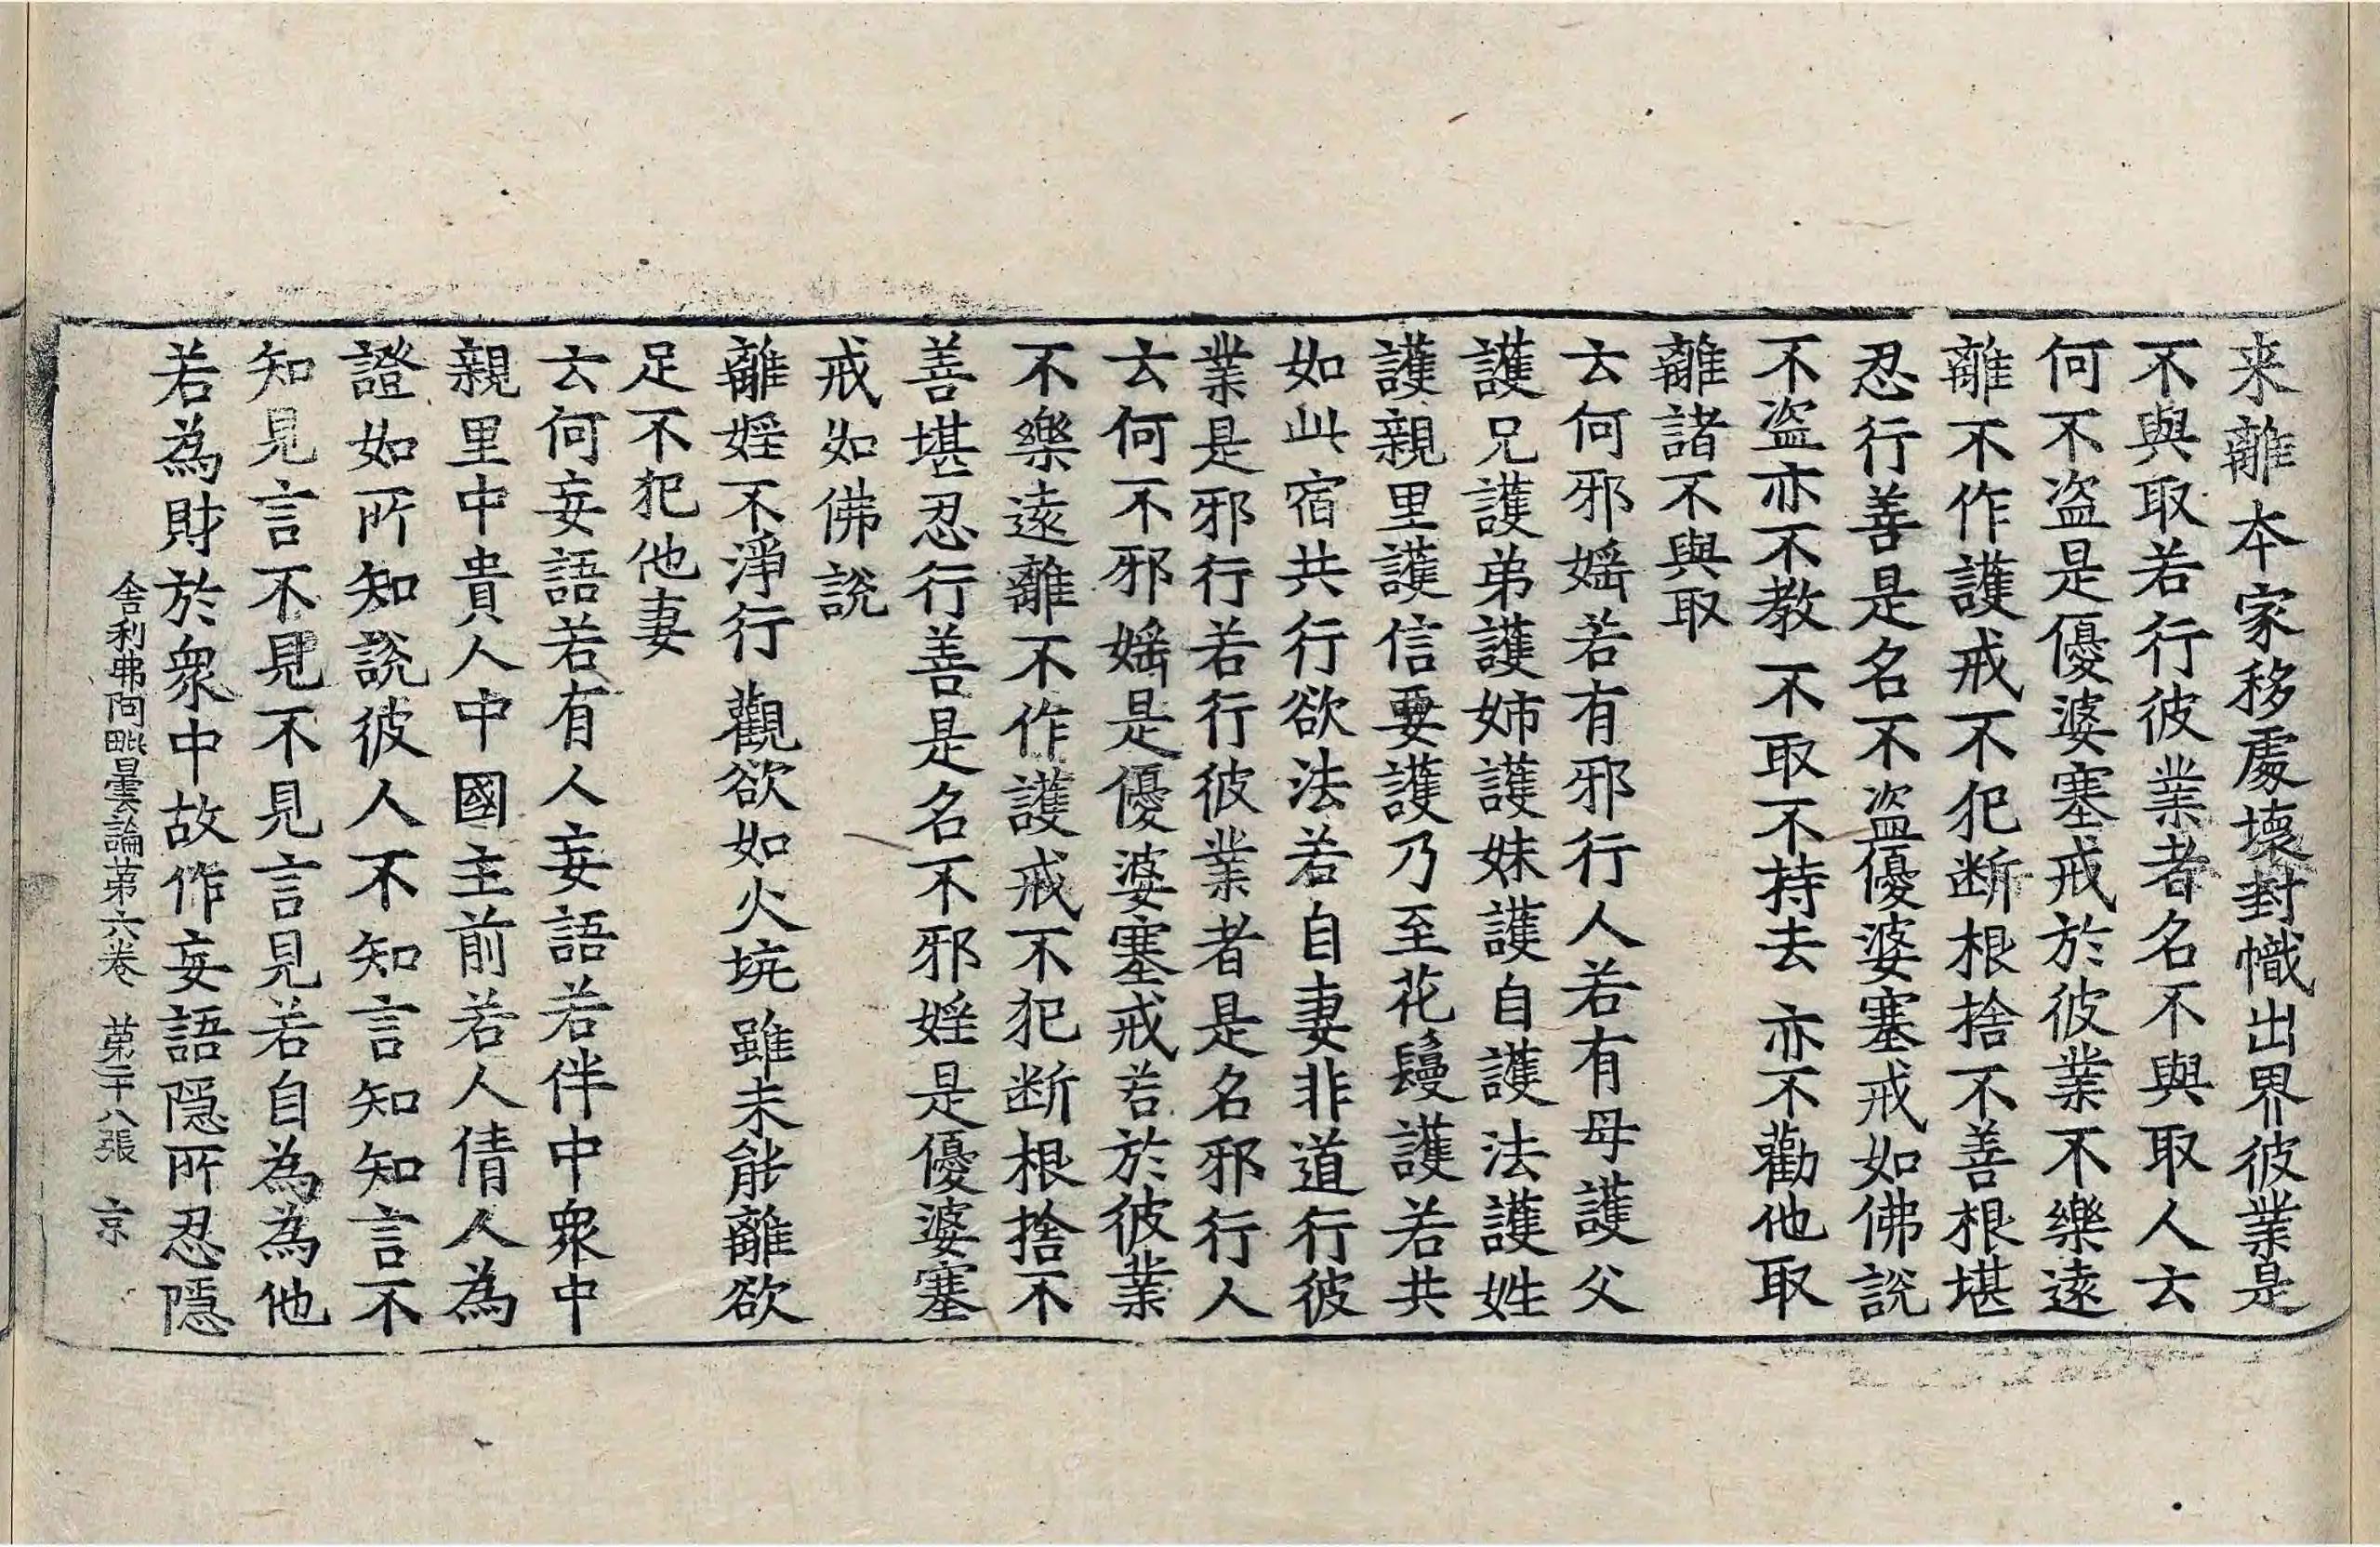 来離本家移處壞封幟出界彼業是
不與取若行彼業者名不與取人云
何不盜是優婆塞戒於彼業不樂遠
離不作護戒不犯断根捨不善根堪
忍行善是名不盜優婆塞戒如佛說
不盜亦不教不取不持去亦不勸他取
離諸不與取
云何邪婬若有邪行人若有母護父
護兄護弟護姉護妹護自護法護姓
護親里護信要護乃至花鬘護若共
如此宿共行欲法若自妻非道行彼
業是邪行若行彼業者是名邪行人
云何不邪婬是優婆塞戒若於彼業
不樂遠離不作護戒不犯断根捨不
善堪忍行善是名不邪婬是優婆塞
戒如佛說
離婬不淨行觀欲如火坑雖未能離欲
足不犯他妻
云何妄語若有人妄語若伴中衆中
親里中貴人中國主前若人倩人為
證如所知說彼人不知言知知言不
知見言不見不見言見若自為為他
若為財於衆中故作妄語隱所忍隱
舍利弗阿毗曇論第六卷 第二十八張 京